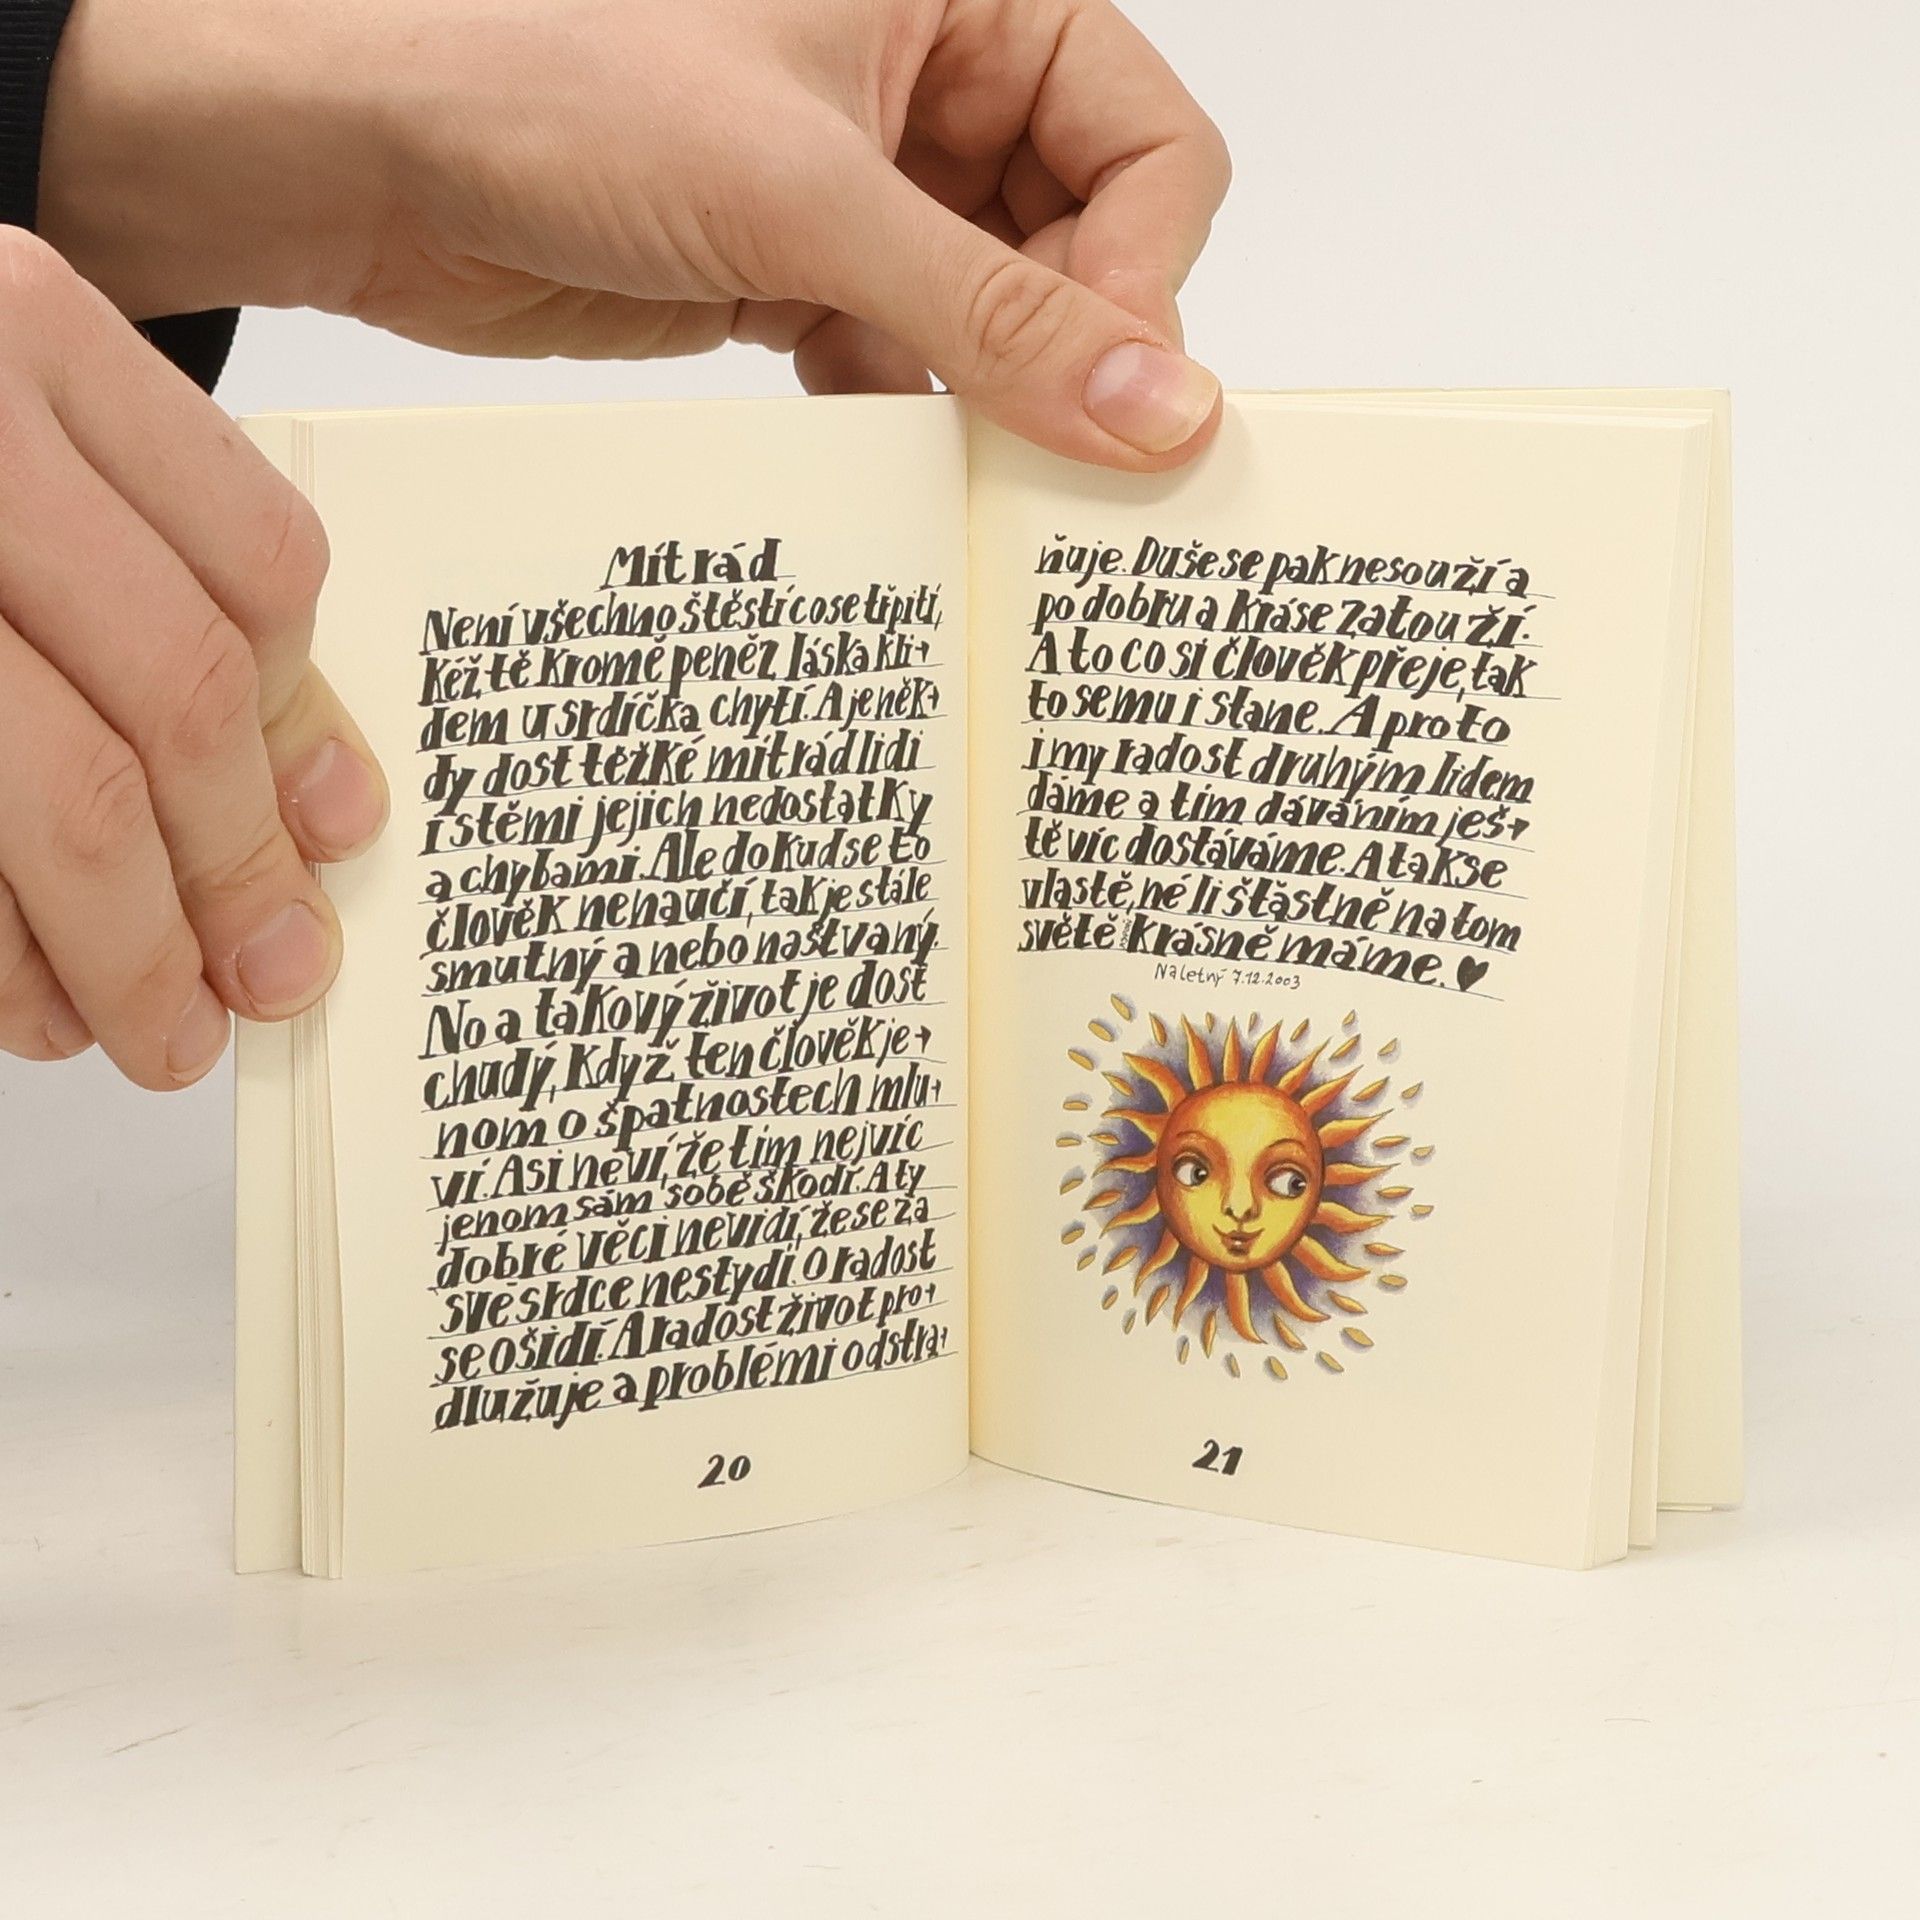 Mít rád
Není všechno štěstí co se třpití,
Kéž tě kromě peněz láska kli→
dem u srdíčka chytí. A je něk→
dy dost těžké mít rád lidi
i s těmi jejich nedostatky
a chybami. Ale dokud se to
člověk nenaučí, tak je stále
smutný a nebo naštvaný.
No a takový život je dost
chudý, Když ten člověk je→
nom o špatnostech mlu→
ví. Asi neví, že tím nejvíc
jenom sám sobě škodí. A ty
dobré věci nevidí, že se za
své srdce nestydí. O radost
se ošidí. A radost život pro→
dlužuje a problémi odstra→
20
ňuje. Duše se pak nesouží a
po dobru a kráse zatouží.
A to co si člověk přeje, tak
to se mu i stane. A proto
i my radost druhým lidem
dáme a tím dáváním ješ→
tě víc dostáváme. A tak se
vlastě, né li šťastně na tom
světě krásně máme. ♥
Naletný 7.12.2003
21